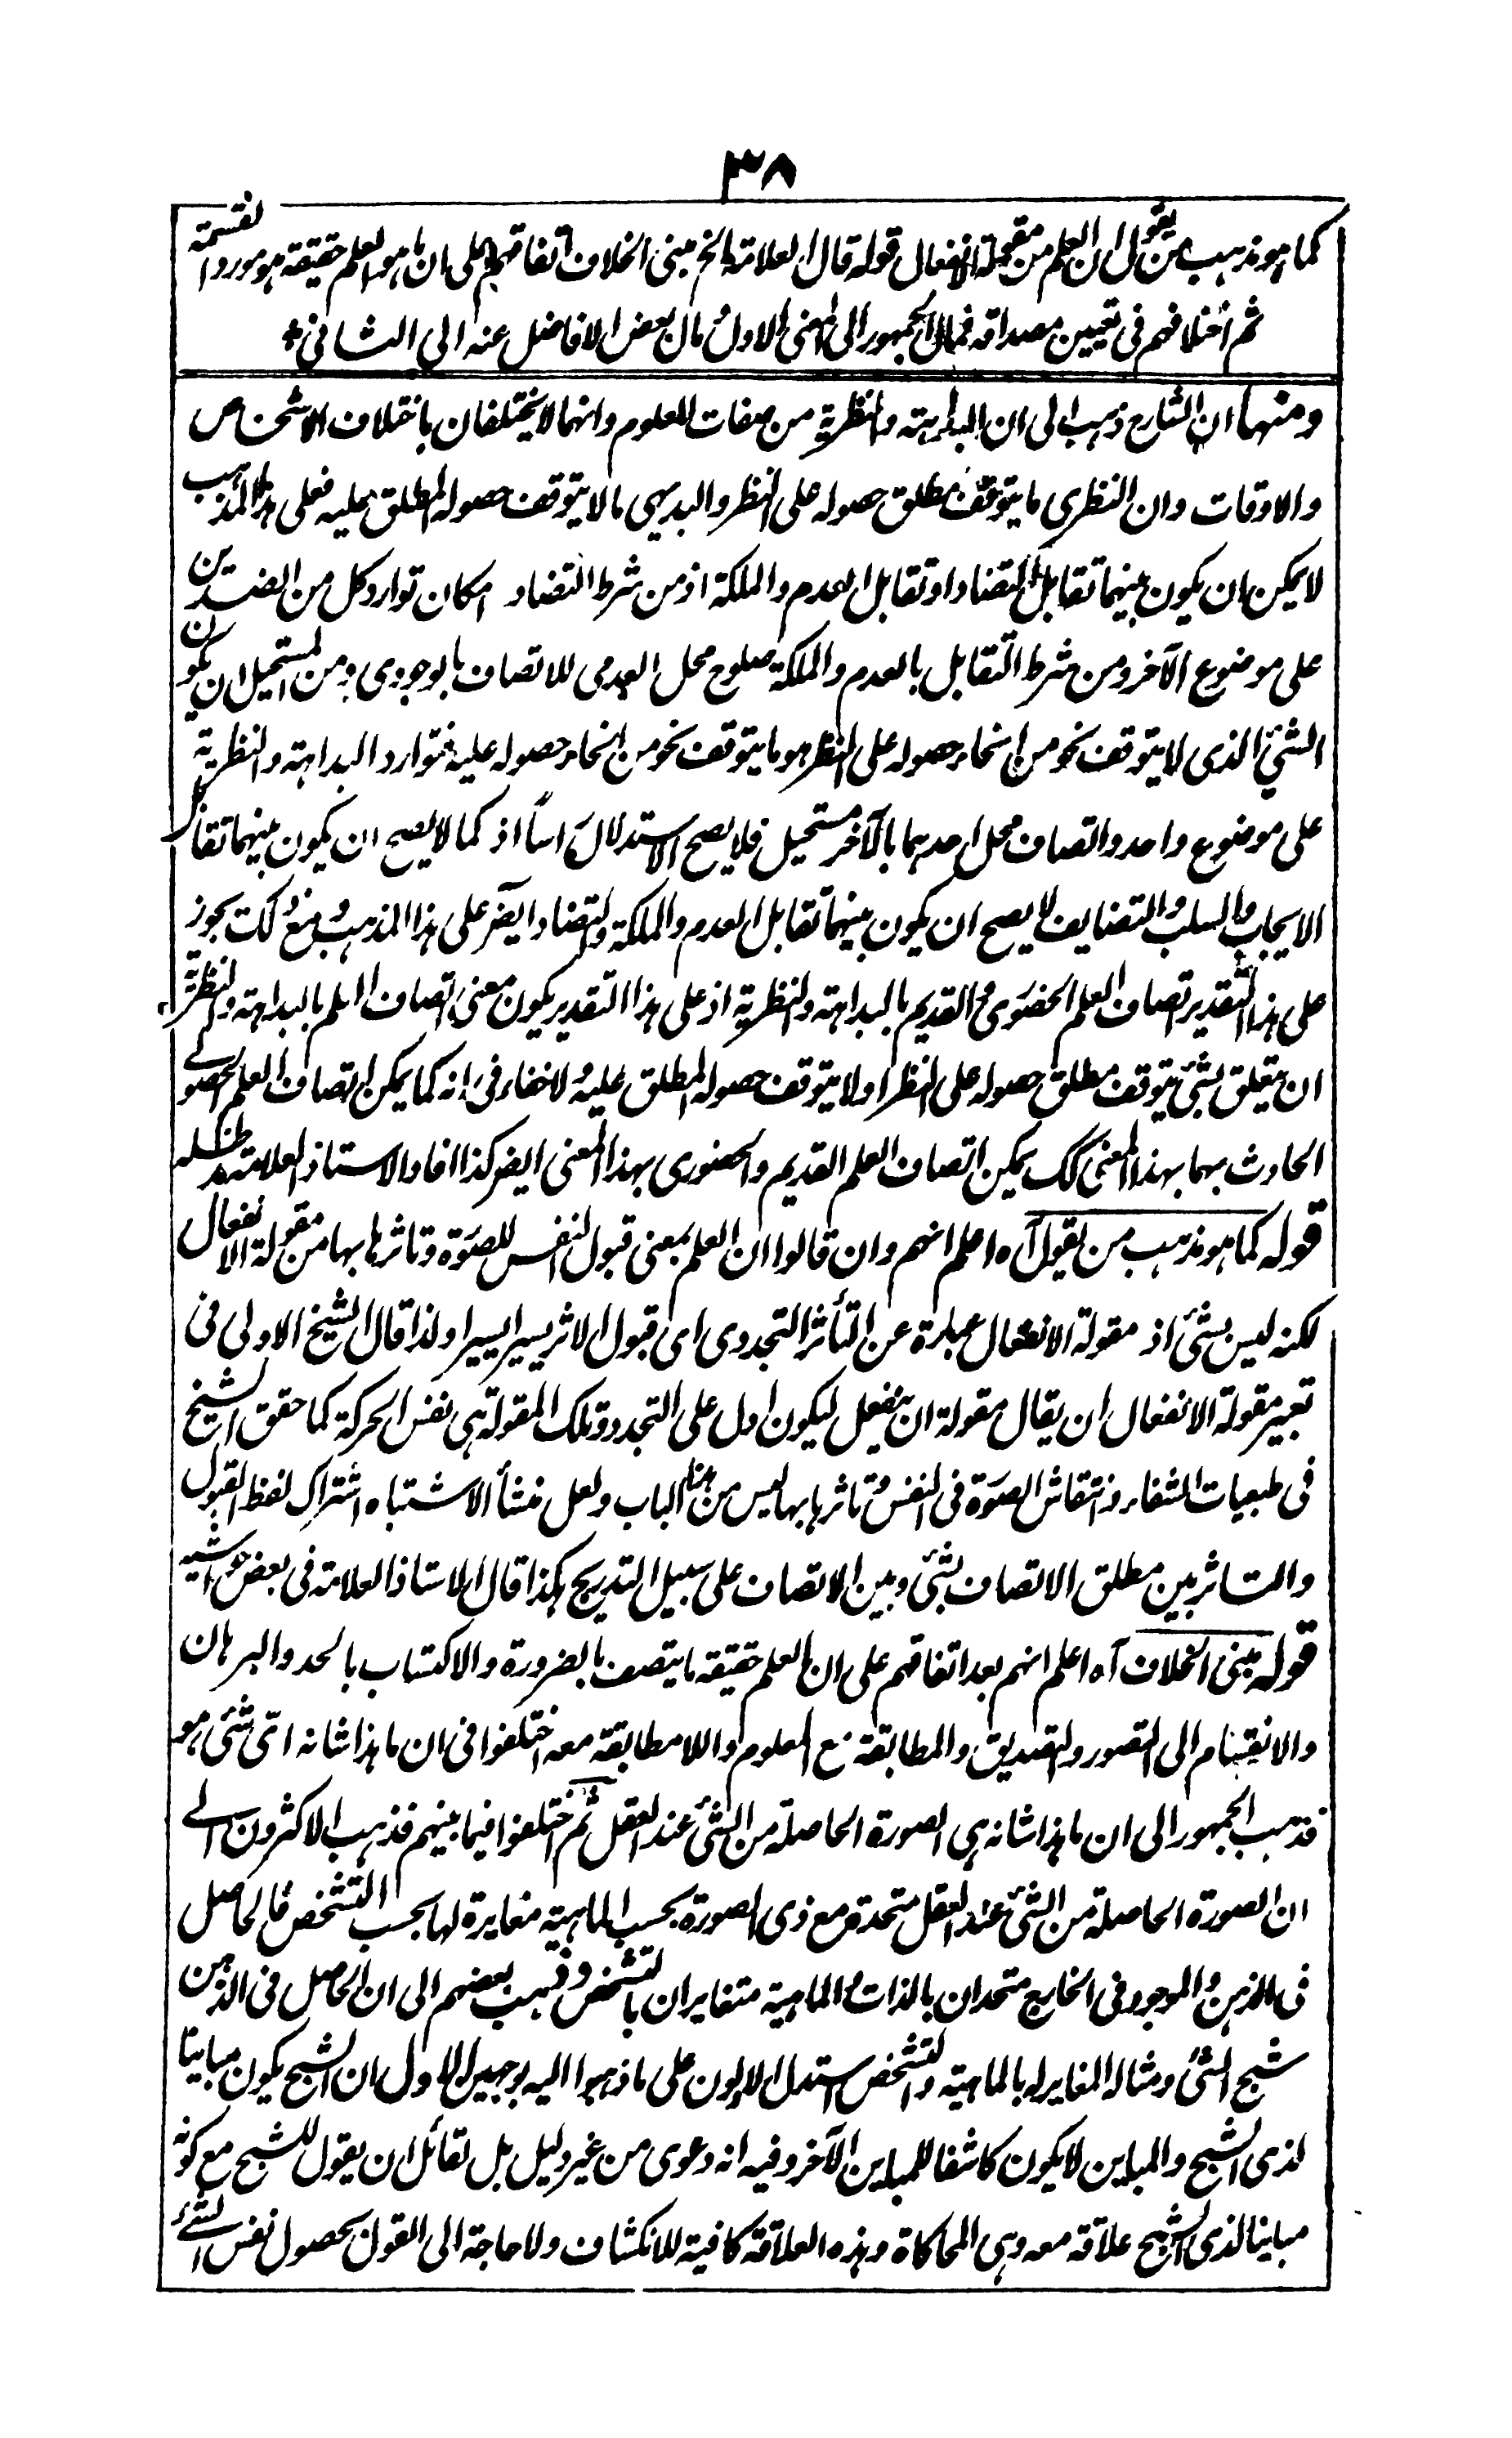 ٣٨
كما هو مذهب من يقول ان العلم من مقولة الانفعال قوله قال العلامة الخ مبنى الخلاف اتفاقهم على ان ما هو العلم حقيقة هو مورد القسمة
ثم اختلافهم فى تعيين مصداقه فمال الجمهور الى المعنى الاول و مال بعض الافاضل عنه الى الثانى
ومنها ان الشارح ذهب الى ان البداهة والنظرية من صفات المعلوم وانهما لا يختلفان باختلاف الاشخاص
والاوقات وان النظرى ما يتوقف مطلق حصوله على النظر والبديهى ما لا يتوقف حصوله المطلق عليه فعلى هذا المذهب
لا يمكن ان يكون بينهما تقابل التضاد او تقابل العدم والملكة اذ من شرط التضاد امكان توارد كل من الضدين
على موضوع الآخر ومن شرط التقابل بالعدم والملكة صلوح محل العدمى للاتصاف بالوجودى ومن المستحيل ان يكون
الشئ الذى لا يتوقف نحو من انحاء حصوله على النظر هو ما يتوقف نحو من انحاء حصوله عليه فتوارد البداهة والنظرية
على موضوع واحد واتصاف محل احدهما بالآخر مستحيل فلا يصح الاستدلال راسًا اذ كما لا يصح ان يكون بينهما تقابل
الايجاب والسلب والتضايف لا يصح ان يكون بينهما تقابل العدم والملكة والتضاد ايضر على هذا المذهب ومنع ذلك يجوز
على هذا التقدير اتصاف العلم الحضورى والقديم بالبداهة والنظرية اذ على هذا التقدير يكون معنى اتصاف العلم بالبداهة والنظرية
ان يتعلق بشئ يتوقف مطلق حصوله على النظر او لا يتوقف حصوله المطلق عليه ولا خفاء فى انه كما يمكن اتصاف العلم الحصولى
الحادث بهما بهذا المعنى كك يمكن اتصاف العلم القديم والحضورى بهذا المعنى ايضر كذا افاد الاستاذ العلامة مد ظله
قوله كما هو مذهب من يقول آه اعلم انهم وان قالوا ان العلم بمعنى قبول النفس للصورة وتاثرها بها من مقولة الانفعال
لكنه ليس بشئ اذ مقولة الانفعال عبارة عن التأثر التجددى اى قبول الاثر يسيرا يسيرا ولذا قال الشيخ الاولى فى
تعبير مقولة الانفعال ان يقال مقولة ان ينفعل ليكون ادل على التجدد وتلك المقولة هى نفس الحركة كما حقق الشيخ
فى طبعيات الشفاء فانتقاش الصورة فى النفس وتاثرها بها ليس من هذا الباب ولعل منشأ الاشتباه اشتراك لفظ القبول
والتاثر بين مطلق الاتصاف بشئ وبين الاتصاف على سبيل التدريج هكذا قال الاستاذ العلامة فى بعض حواشيه
قوله مبنى الخلاف آه اعلم انهم بعد اتفاقهم على ان العلم حقيقة ما يتصف بالضرورة والاكتساب بالحد والبرهان
والانقسام الى التصور والتصديق والمطابقة مع المعلوم واللامطابقة معه اختلفوا فى ان ما هذا شانه اىّ شئ هو
فذهب الجمهور الى ان ما هذا شانه هى الصورة الحاصلة من الشئ عند العقل ثم اختلفوا فيما بينهم فذهب الاكثرون الى
ان الصورة الحاصلة من الشئ عند العقل متحدة مع ذى الصورة بحسب الماهية مغايرة لها بحسب التشخص فالحاصل
فى الذهن والموجود فى الخارج متحدان بالذات والماهية متغايران بالتشخص وذهب بعضهم الى ان الحاصل فى الذهن
شبح الشئ ومثاله المغاير له بالماهية والتشخص استدل الاولون على ما ذهبوا اليه بوجهين الاول ان الشبح يكون مباينا
لذى الشبح والمباين لا يكون كاشفا للمباين الآخر وفيه انه دعوى من غير دليل بل لقائل ان يقول للشبح مع كونه
مباينا لذى الشبح علاقة معه وهى المحاكاة وهذه العلاقة كافية للانكشاف ولا حاجة الى القول بحصول نفس الشئ